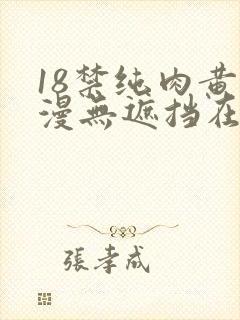 18禁纯肉黄
漫無遮挡在
張孝成